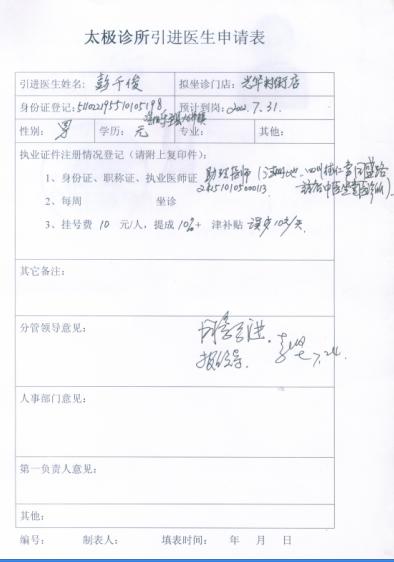 太极诊所引进医生申请表
引进医生姓名: 彭千俊 拟坐诊门店: 光华村街店
身份证登记: 预计到岗: 7.31.
性别: 男 学历: 无 专业: 其他:
执业证件注册情况登记(请附上复印件):
1、身份证、职称证、执业医师证 助理医师
2、每周 坐诊
3、挂号费 10 元/人，提成 10%+ 津补贴 误餐10元/天
其它备注:
分管领导意见:
同意引进.
报领导. 7.24.
人事部门意见:
第一负责人意见:
其他:
编号: 制表人: 填表时间: 年 月 日